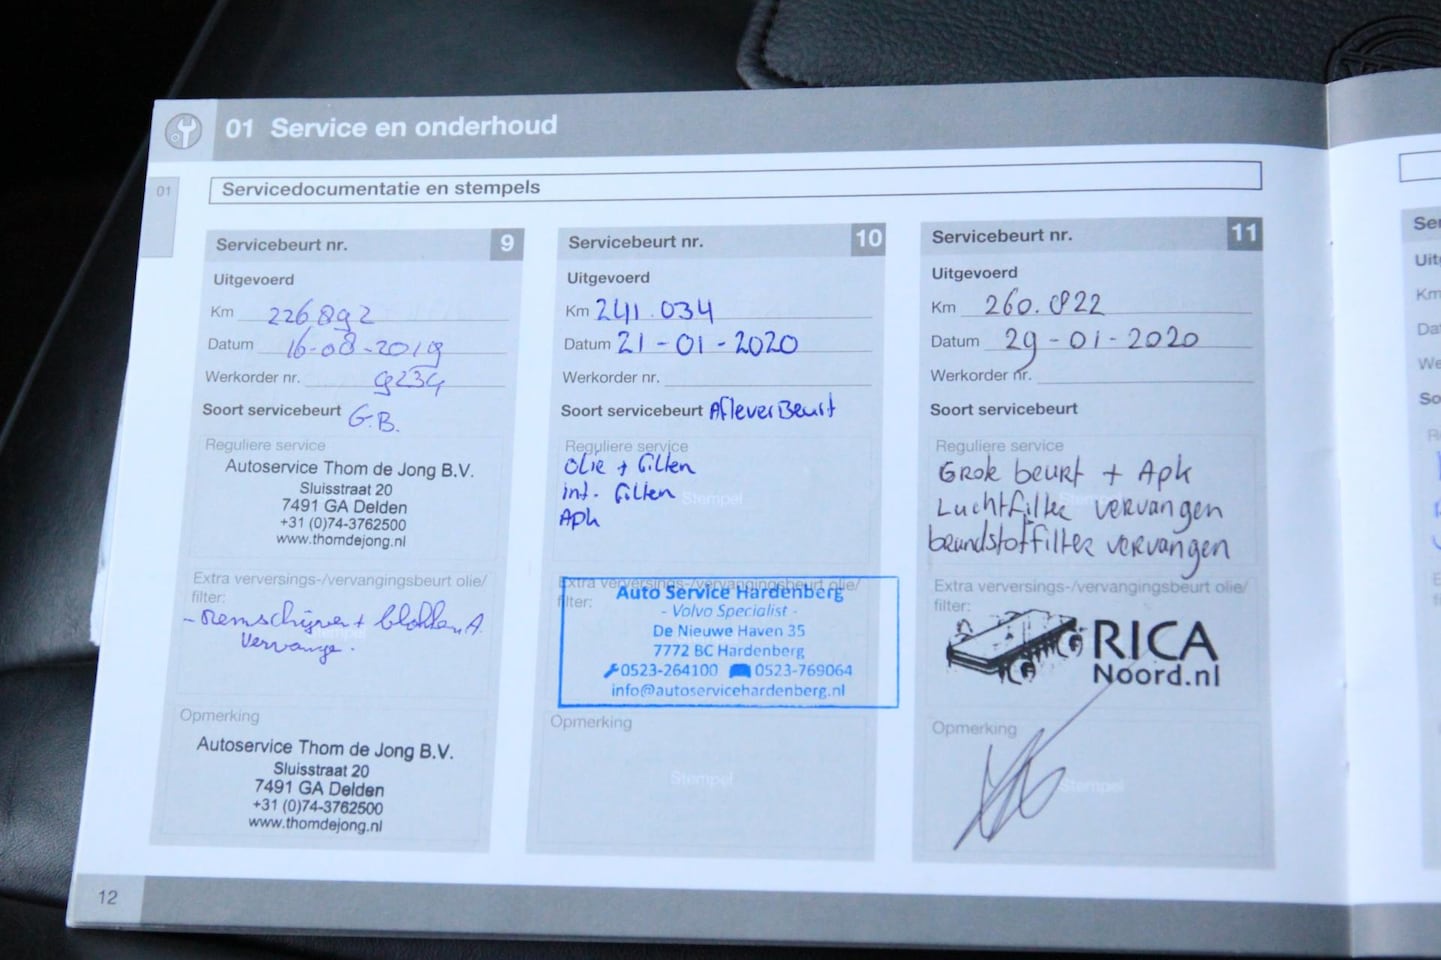 01 Service en onderhoud
01
Servicedocumentatie en stempels
Servicebeurt nr. 9
Uitgevoerd
Km 226.892
Datum 16-08-2019
Werkorder nr. 9234
Soort servicebeurt G.B.
Reguliere service
Autoservice Thom de Jong B.V.
Sluisstraat 20
7491 GA Delden
+31 (0)74-3762500
www.thomdejong.nl
Extra verversings-/vervangingsbeurt olie/
filter:
- Remschijven + blokken A.
vervange.
Opmerking
Autoservice Thom de Jong B.V.
Sluisstraat 20
7491 GA Delden
+31 (0)74-3762500
www.thomdejong.nl
Servicebeurt nr. 10
Uitgevoerd
Km 241.034
Datum 21-01-2020
Werkorder nr.
Soort servicebeurt AfleverBeurt
Reguliere service
Olie + filter
int. filter
Apk
Stempel
Extra verversings-/vervangingsbeurt olie/
filter:
Auto Service Hardenberg
- Volvo Specialist -
De Nieuwe Haven 35
7772 BC Hardenberg
0523-264100 0523-769064
info@autoservicehardenberg.nl
Opmerking
Stempel
Servicebeurt nr. 11
Uitgevoerd
Km 260.822
Datum 29-01-2020
Werkorder nr.
Soort servicebeurt
Reguliere service
Grote beurt + Apk
Luchtfilter vervangen
brandstoffilter vervangen
Extra verversings-/vervangingsbeurt olie/
filter:
RICA
Noord.nl
Opmerking
Stempel
12